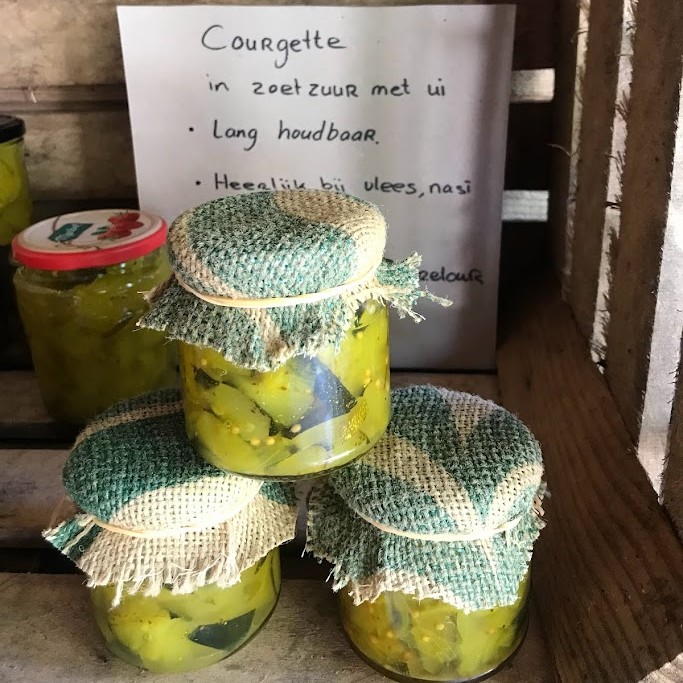 Courgette
in zoetzuur met ui
• Lang houdbaar.
• Heerlijk bij vlees, nasi
retour